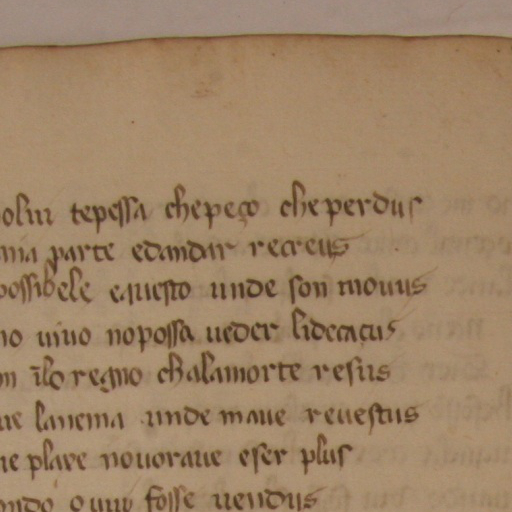 tepessa chepeço che perdus
parte edandar recreus
possibele equesto unde son mouus
uiuo no possa ueder li decaçus
regno cha la morte resus
la nema unde maue reuestus
plaxe no uoraue eser plus
fosse uendus